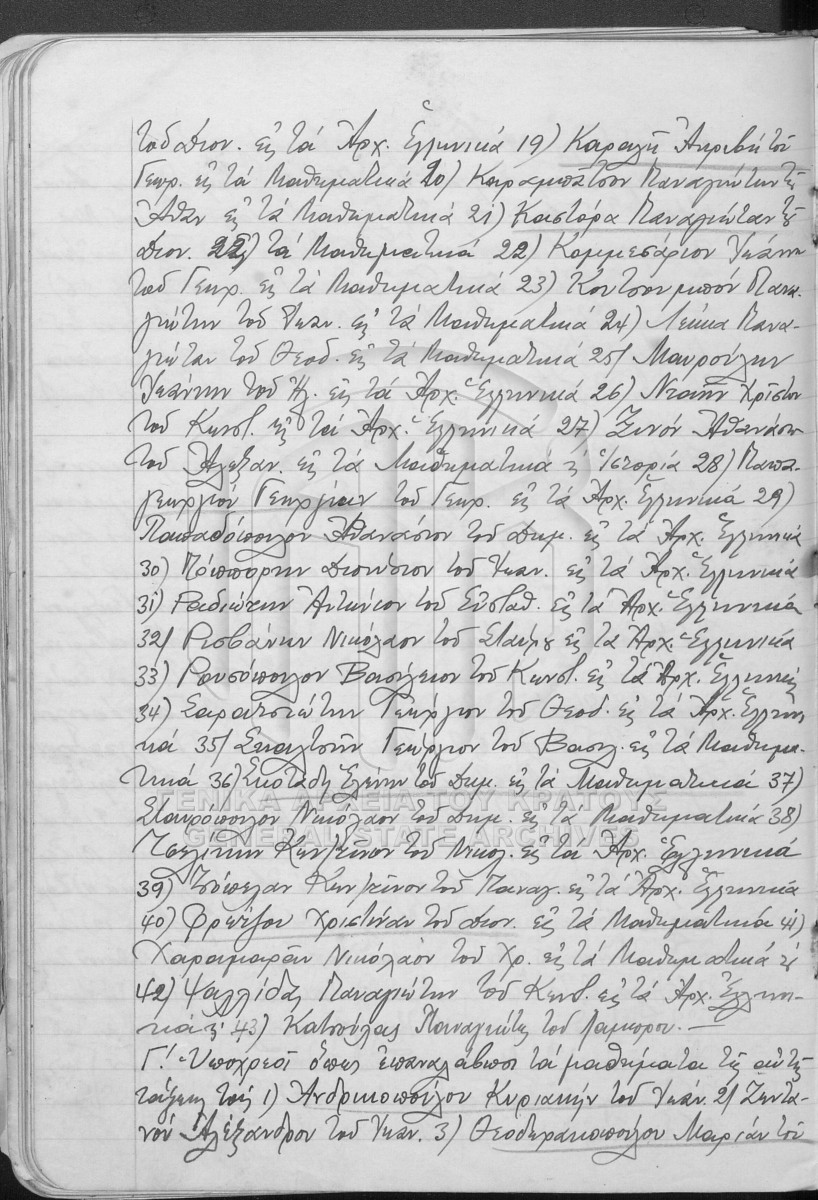 τοῦ Διον. εἰς τά Ἀρχ. Ἑλληνικά 19) Καραλῆ Ἀκριβή τοῦ
Γεωρ. εἰς τά Μαθηματικά 20) Καραμπάτσον Παναγιώτην τοῦ
Ἀθαν εἰς τά Μαθηματικά 21) Καστόρα Παναγιώταν τοῦ
Διον. εἰς τά Μαθηματικά 22) Κομμεσάριον Ἰωάνν
τοῦ Γεωρ. εἰς τά Μαθηματικά 23) Πανα-
γιώτην τοῦ Ἰωαν. εἰς τά Μαθηματικά 24) Λέκκα Πανα-
γιώταν τοῦ Θεοδ. εἰς τά Μαθηματικά 25) Μαυρούλην
Ἰωάννην τοῦ Ἠλ. εἰς τά Ἀρχ. Ἑλληνικά 26) Χρῖστον
τοῦ Κωνσ. εἰς τά Ἀρχ. Ἑλληνικά 27) Ξινόν Ἀθανάσιον
τοῦ Ἀλεξαν. εἰς τά Μαθηματικά κ Ἱστορία 28) Παπα-
γεωργίου Γεωργίαν τοῦ Γεωρ. εἰς τά Ἀρχ. Ἑλληνικά 29)
Παπαδόπουλον Ἀθανάσιον τοῦ Δημ. εἰς τά Ἀρχ. Ἑλληνικά
30) Διονύσιον τοῦ Ἰωαν. εἰς τά Ἀρχ. Ἑλληνικά
31) Ραδιώτην Ἀντώνιον τοῦ Εὐσταθ. εἰς τά Ἀρχ. Ἑλληνικά
32) Ρισβάνην Νικόλαον τοῦ Σταύρου εἰς τά Ἀρχ. Ἑλληνικά
33) Ρουσόπουλον Βασίλειον τοῦ Κωνσ. εἰς τά Ἀρχ. Ἑλληνικά
34) Σαραντιώτην Γεώργιον τοῦ Θεοδ. εἰς τά Ἀρχ. Ἑλλην
κά 35) Σκαλτσῆν Γεώργιον τοῦ Βασιλ. εἰς τά Μαθημα-
τικά 36) Σκοτάδη Ἑλένην τοῦ Δημ. εἰς τά Μαθηματικά 37)
Σταυρόπουλον Νικόλαον τοῦ Δημ. εἰς τά Μαθηματικά 38)
Τσελίκην Κων/τῖνον τοῦ Νικολ. εἰς τά Ἀρχ. Ἑλληνικά
39) Τσόπελαν Κων/τῖνον τοῦ Παναγ. εἰς τά Ἀρχ. Ἑλληνικά
40) Χριστίναν τοῦ Διον. εἰς τά Μαθηματικά 41)
Χαραμαρᾶν Νικόλαον τοῦ Χρ. εἰς τά Μαθηματικά κ
42) Ψαλλίδας Παναγιώτην τοῦ Κωνσ. εἰς τά Ἀρχ. Ἑλλην-
ικά κ 43) Κατσούλας Παναγιώτης τοῦ Λαμπρου. —
Γ! Ὑποχρεοῖ ὅπως ἐπαναλάβωσι τά μαθήματα τῆς αὐτῆς
τάξεως τούς 1) Ἀνδρικοπούλου Κυριακήν τοῦ Ἰωάν. 2) Ζεντά-
νον Ἀλέξανδρον τοῦ Ἰωαν. 3) Θεοδωρακοπούλου Μαρίαν τοῦ
ΓΕΝΙΚΑ ΑΡΧΕΙΑ ΤΟΥ ΚΡΑΤΟΥΣ
GENERAL STATE ARCHIVES